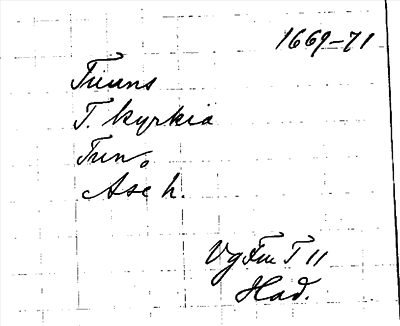 1669-71
Tuuns
T. kyrkia
Tun.
Ase h.
Vg Fm T 11
Had.